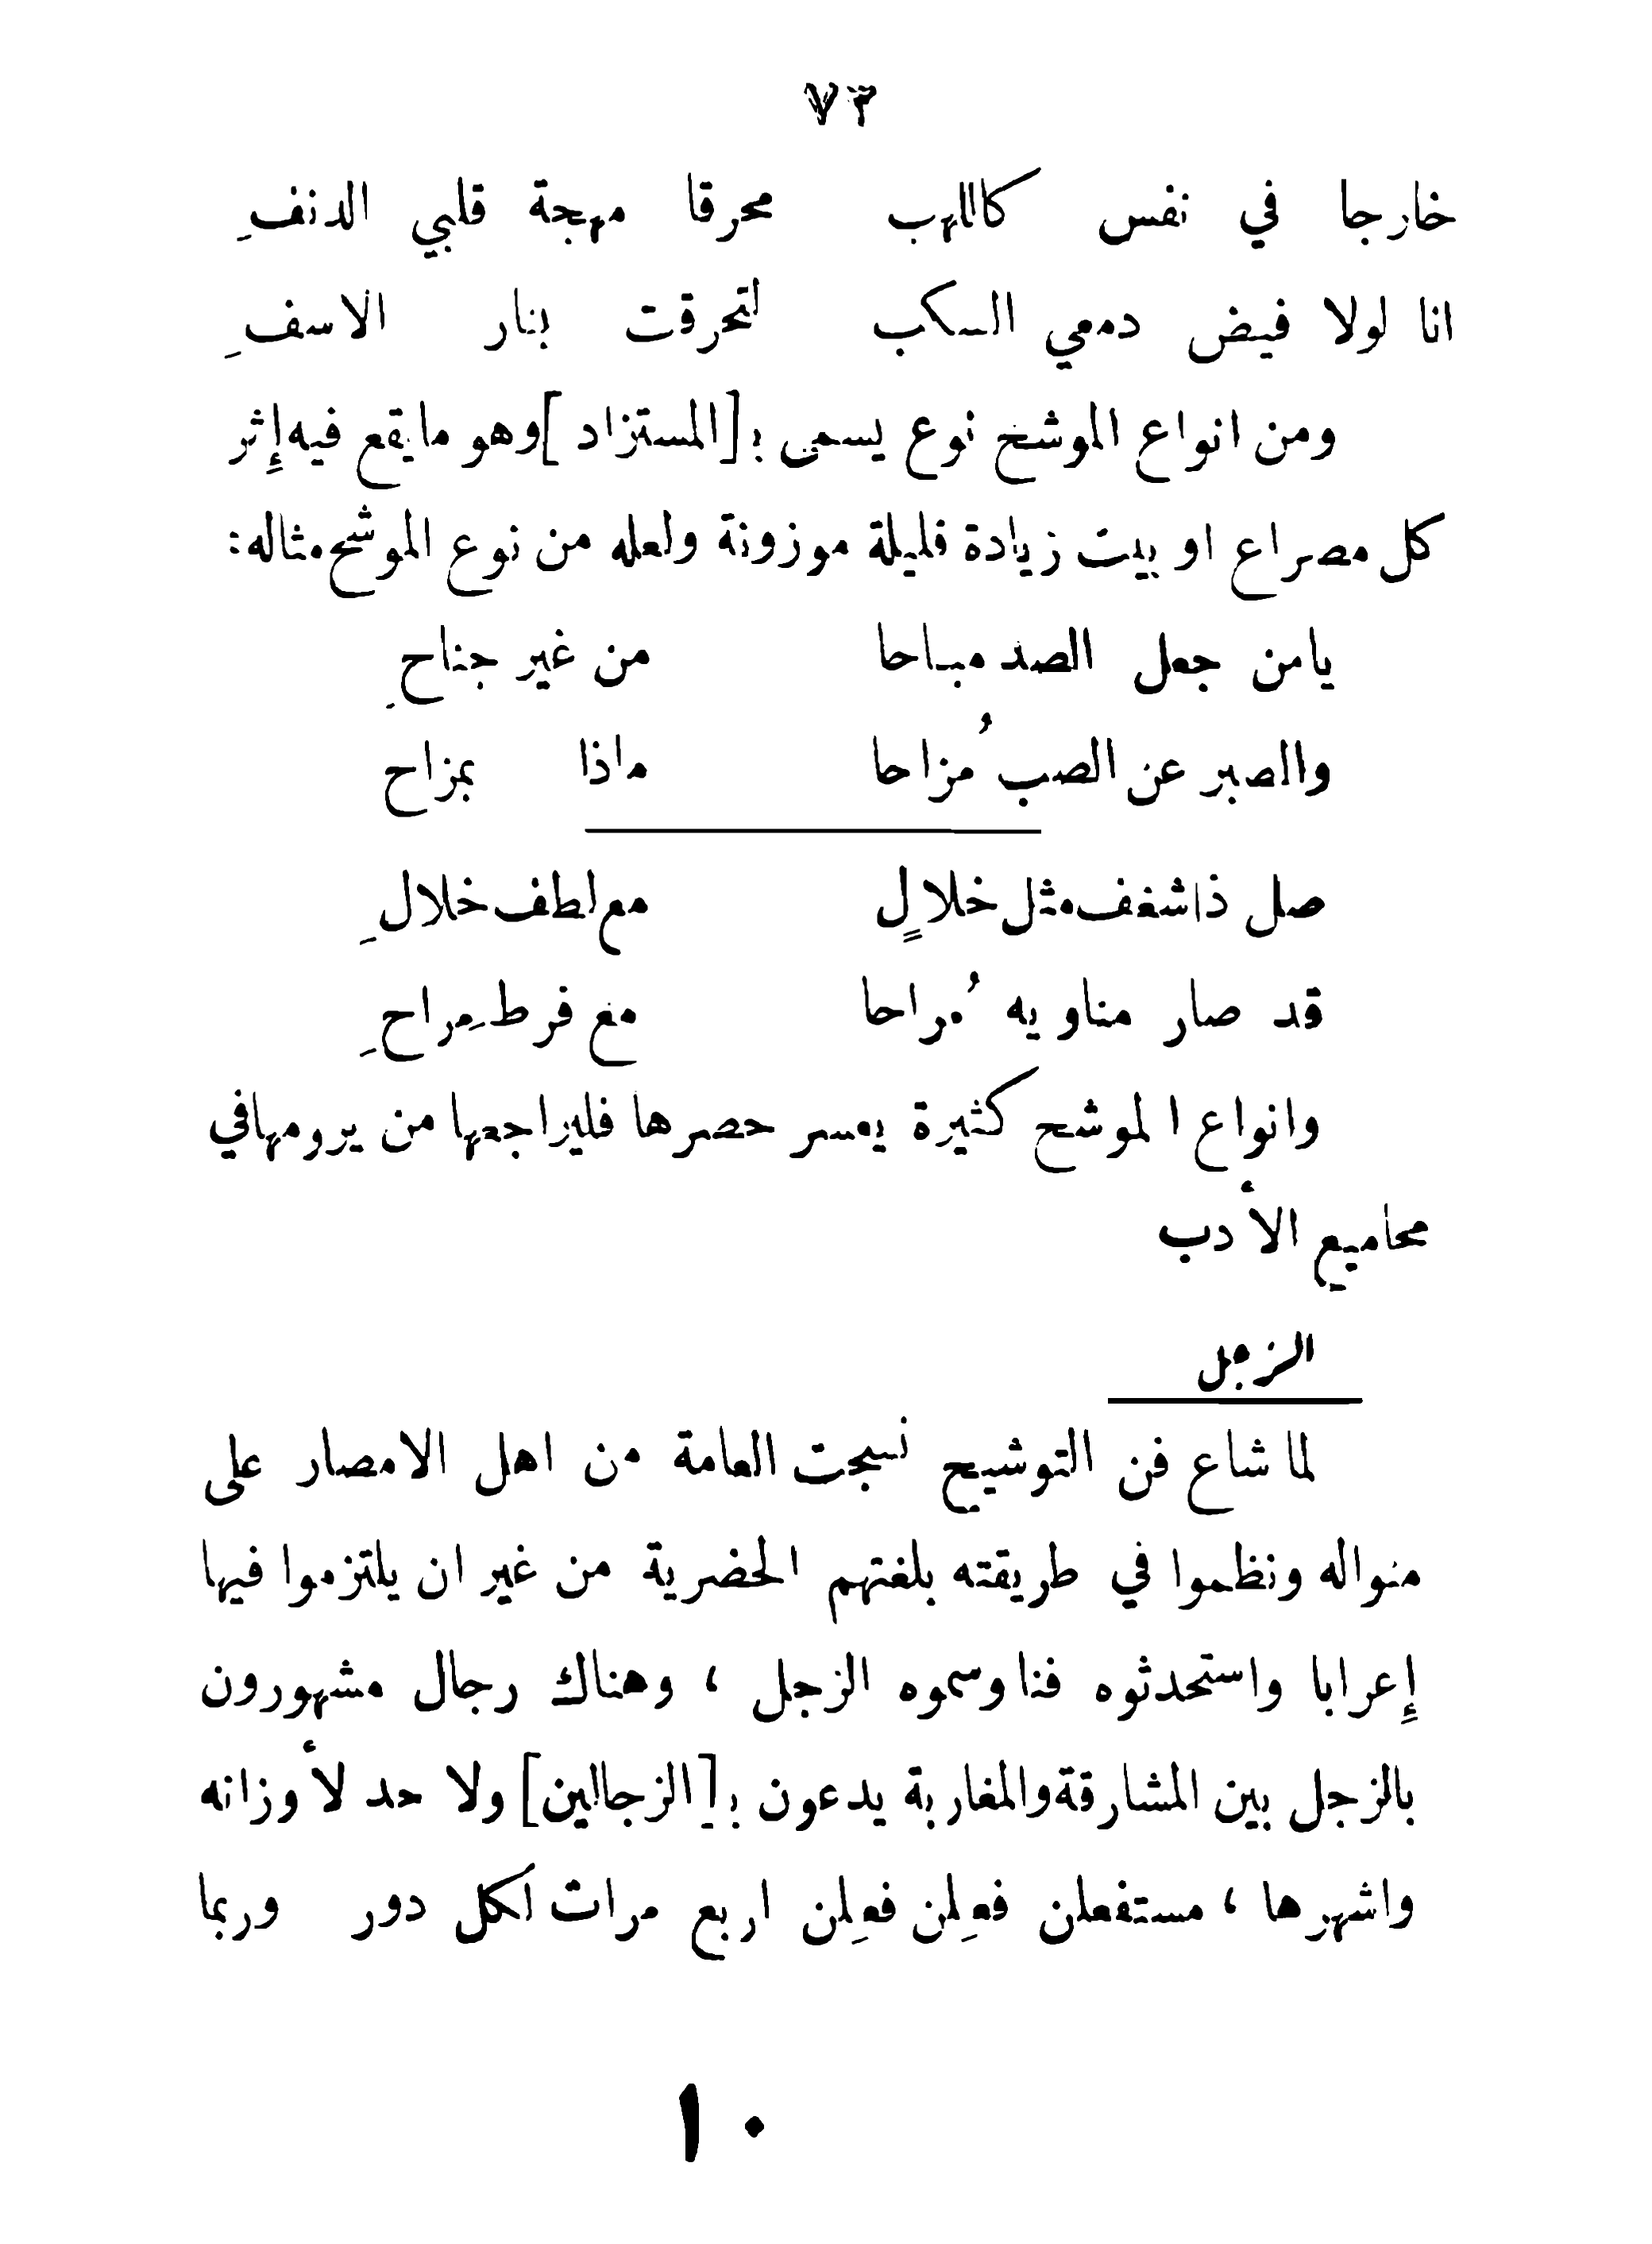 ٧٣
خارجا في نفس كاللهب محرقا مهجة قلبي الدنفِ
انا لولا فيض دمعي السكب لتحرقت بنار الاسفِ
ومن انواع الموشخ نوع يسمى بـ [المستزاد] وهو ما يقع فيه إِثر
كل مصراع او بيت زيادة قليلة موزونة ولعله من نوع الموشح مثاله:
يامن جعل الصد مباحا من غير جناحِ
والصبر عن الصب مُزاحا ماذا بمزاح
صل ذا شغف مثل خلالٍ مع لطف خلالِ
قد صار مناويه مُراحا مع فرط مِراحِ
وانواع الموشح كثيرة يعسر حصرها فليراجعها من يرومها في
مجاميع الأدب
الزجل
لما شاع فن التوشيح نسجت العامة من اهل الامصار على
منواله ونظموا في طريقته بلغتهم الحضرية من غير ان يلتزموا فيها
إِعرابا واستحدثوه فنا وسموه الزجل ، وهناك رجال مشهورون
بالزجل بين المشارقة والمغاربة يدعون بـ [الزجالين] ولا حد لأوزانه
واشهرها ، مستفعلن فعِلن فعِلن اربع مرات لكل دور وربما
١٠